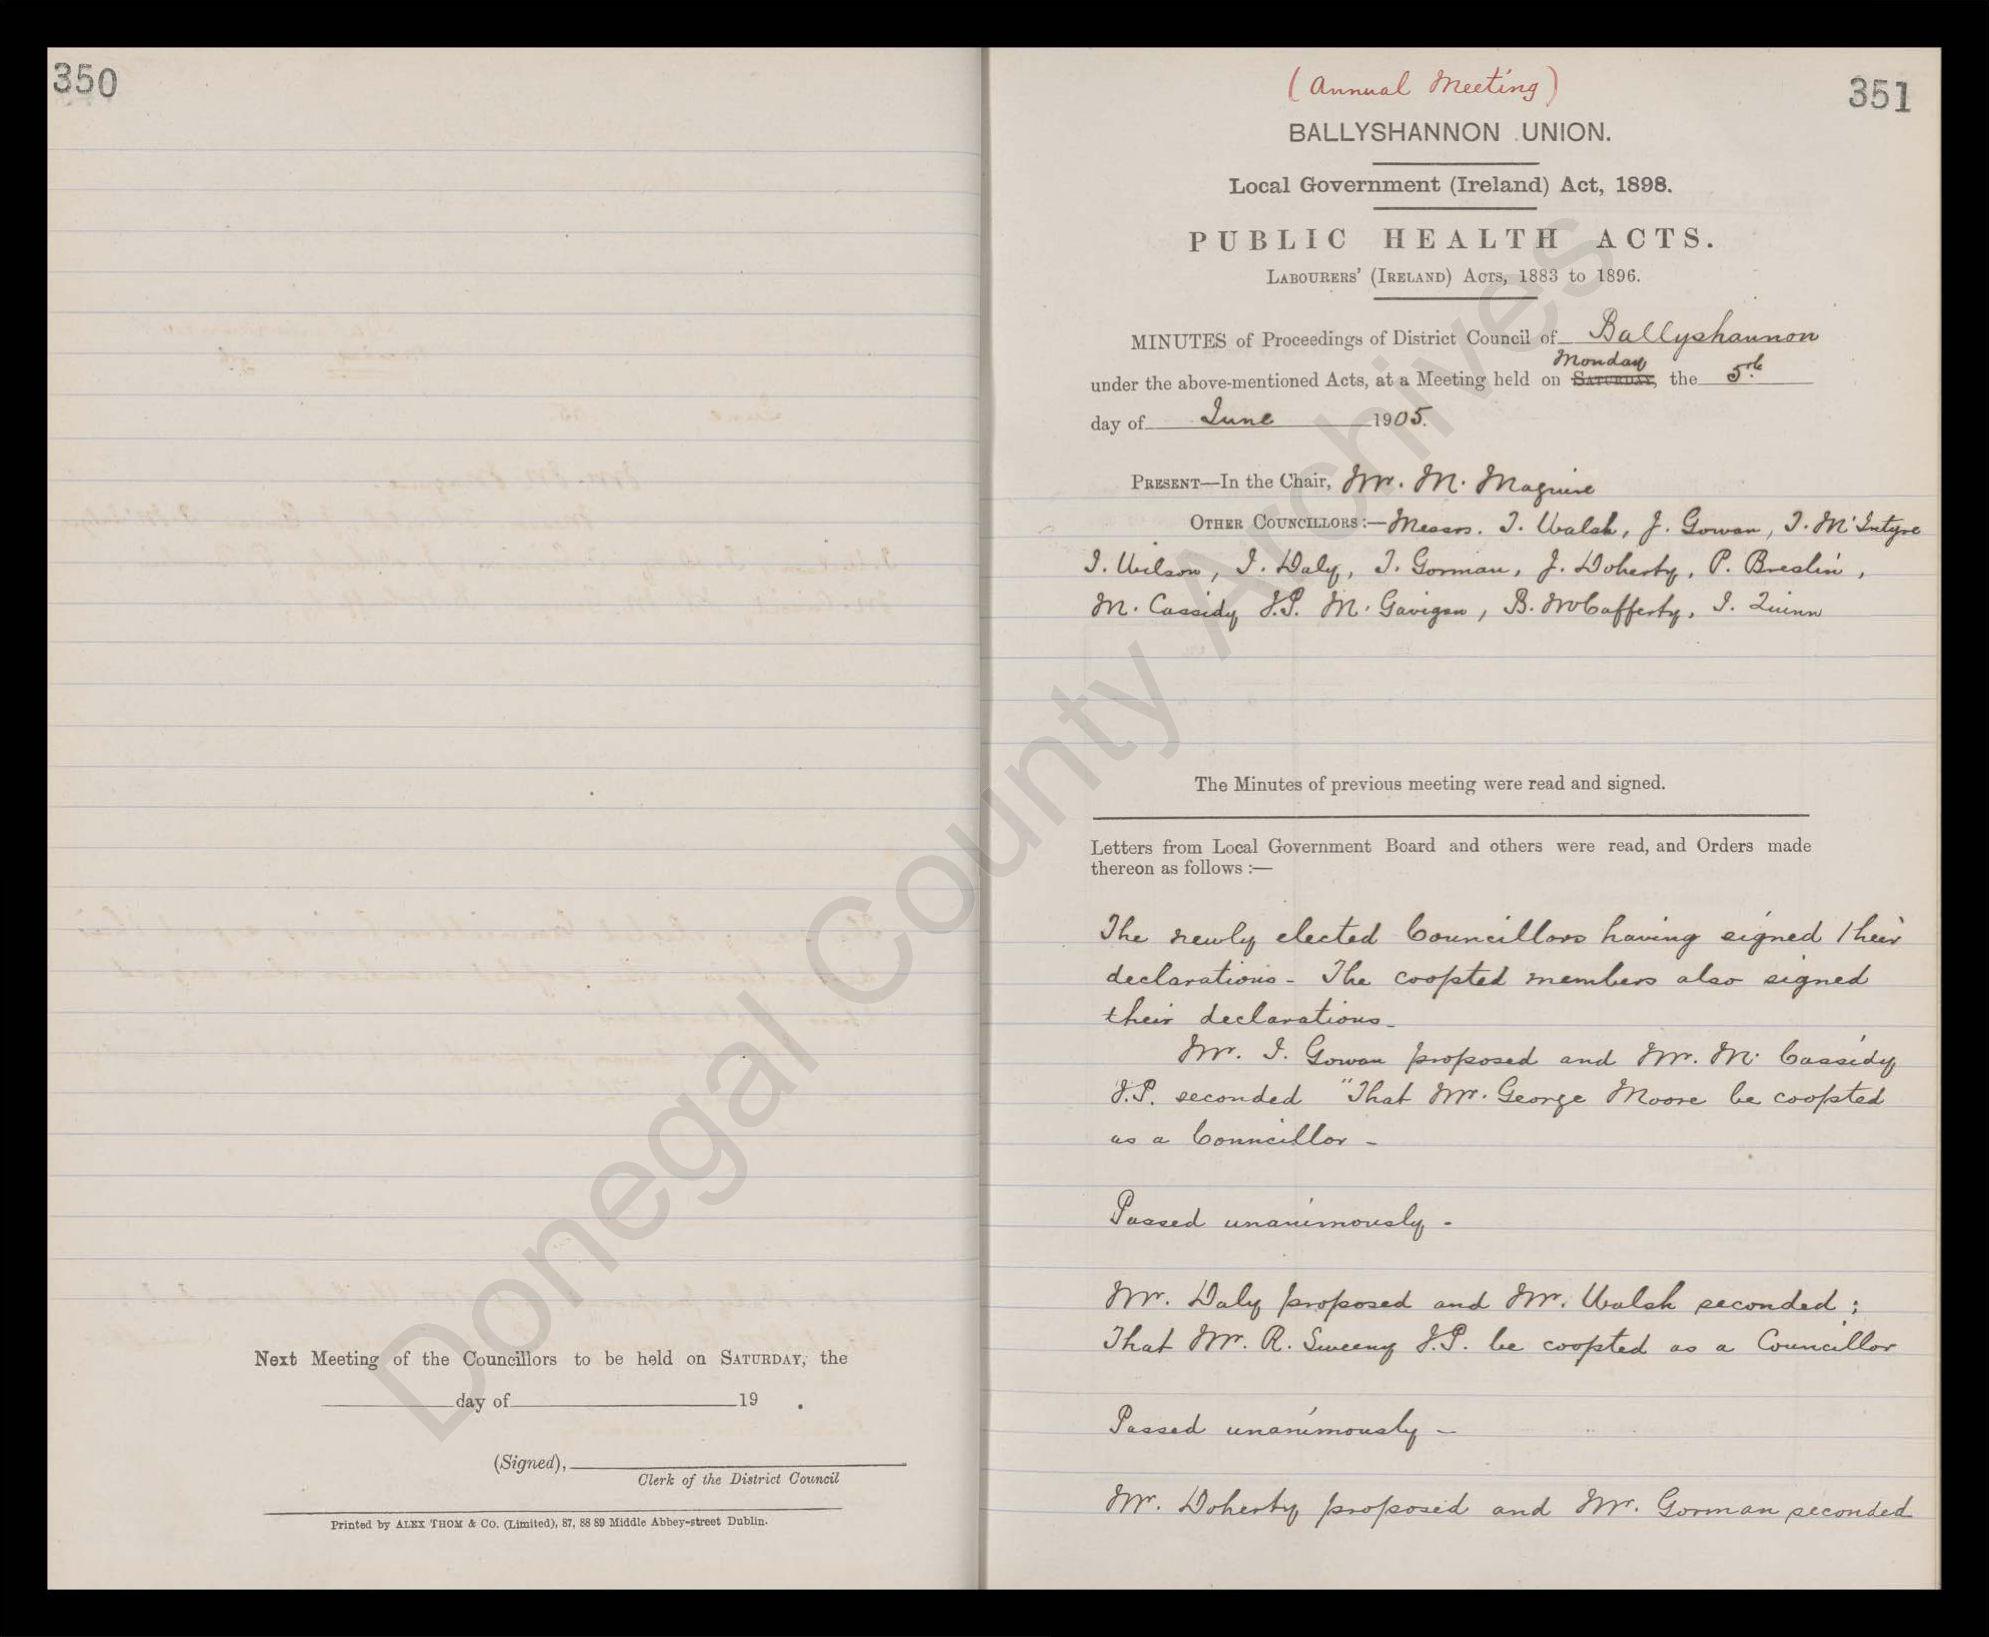 350
Next Meeting of the Councillors to be held on SATURDAY, the
day of 19 .
(Signed),
Clerk of the District Council
Printed by ALEX THOM & Co. (Limited), 87, 88 89 Middle Abbey-street Dublin.
351
(Annual Meeting)
BALLYSHANNON UNION.
Local Government (Ireland) Act, 1898.
PUBLIC HEALTH ACTS.
LABOURERS' (IRELAND) ACTS, 1883 to 1896.
MINUTES of Proceedings of District Council of Ballyshannon
Monday
under the above-mentioned Acts, at a Meeting held on SATURDAY, the 5th
day of June 1905.
PRESENT—In the Chair, Mr. M. Maguire
OTHER COUNCILLORS:—Messrs. T. Walsh, J. Gowan, T. McIntyre
T. Wilson, T. Daly, T. Gorman, J. Doherty, P. Breslin,
M. Cassidy J.P. M. Gavigan, B. McCafferty, T. Quinn
The Minutes of previous meeting were read and signed.
Letters from Local Government Board and others were read, and Orders made
thereon as follows :—
The newly elected Councillors having signed their
declarations - The coopted members also signed
their declarations -
Mr. J. Gowan proposed and Mr. M. Cassidy
J.P. seconded "That Mr. George Moore be coopted
as a Councillor -
Passed unanimously -
Mr. Daly proposed and Mr. Walsh seconded ;
That Mr. R. Sweeny J.P. be coopted as a Councillor
Passed unanimously -
Mr. Doherty proposed and Mr. Gorman seconded
Donegal County Archives